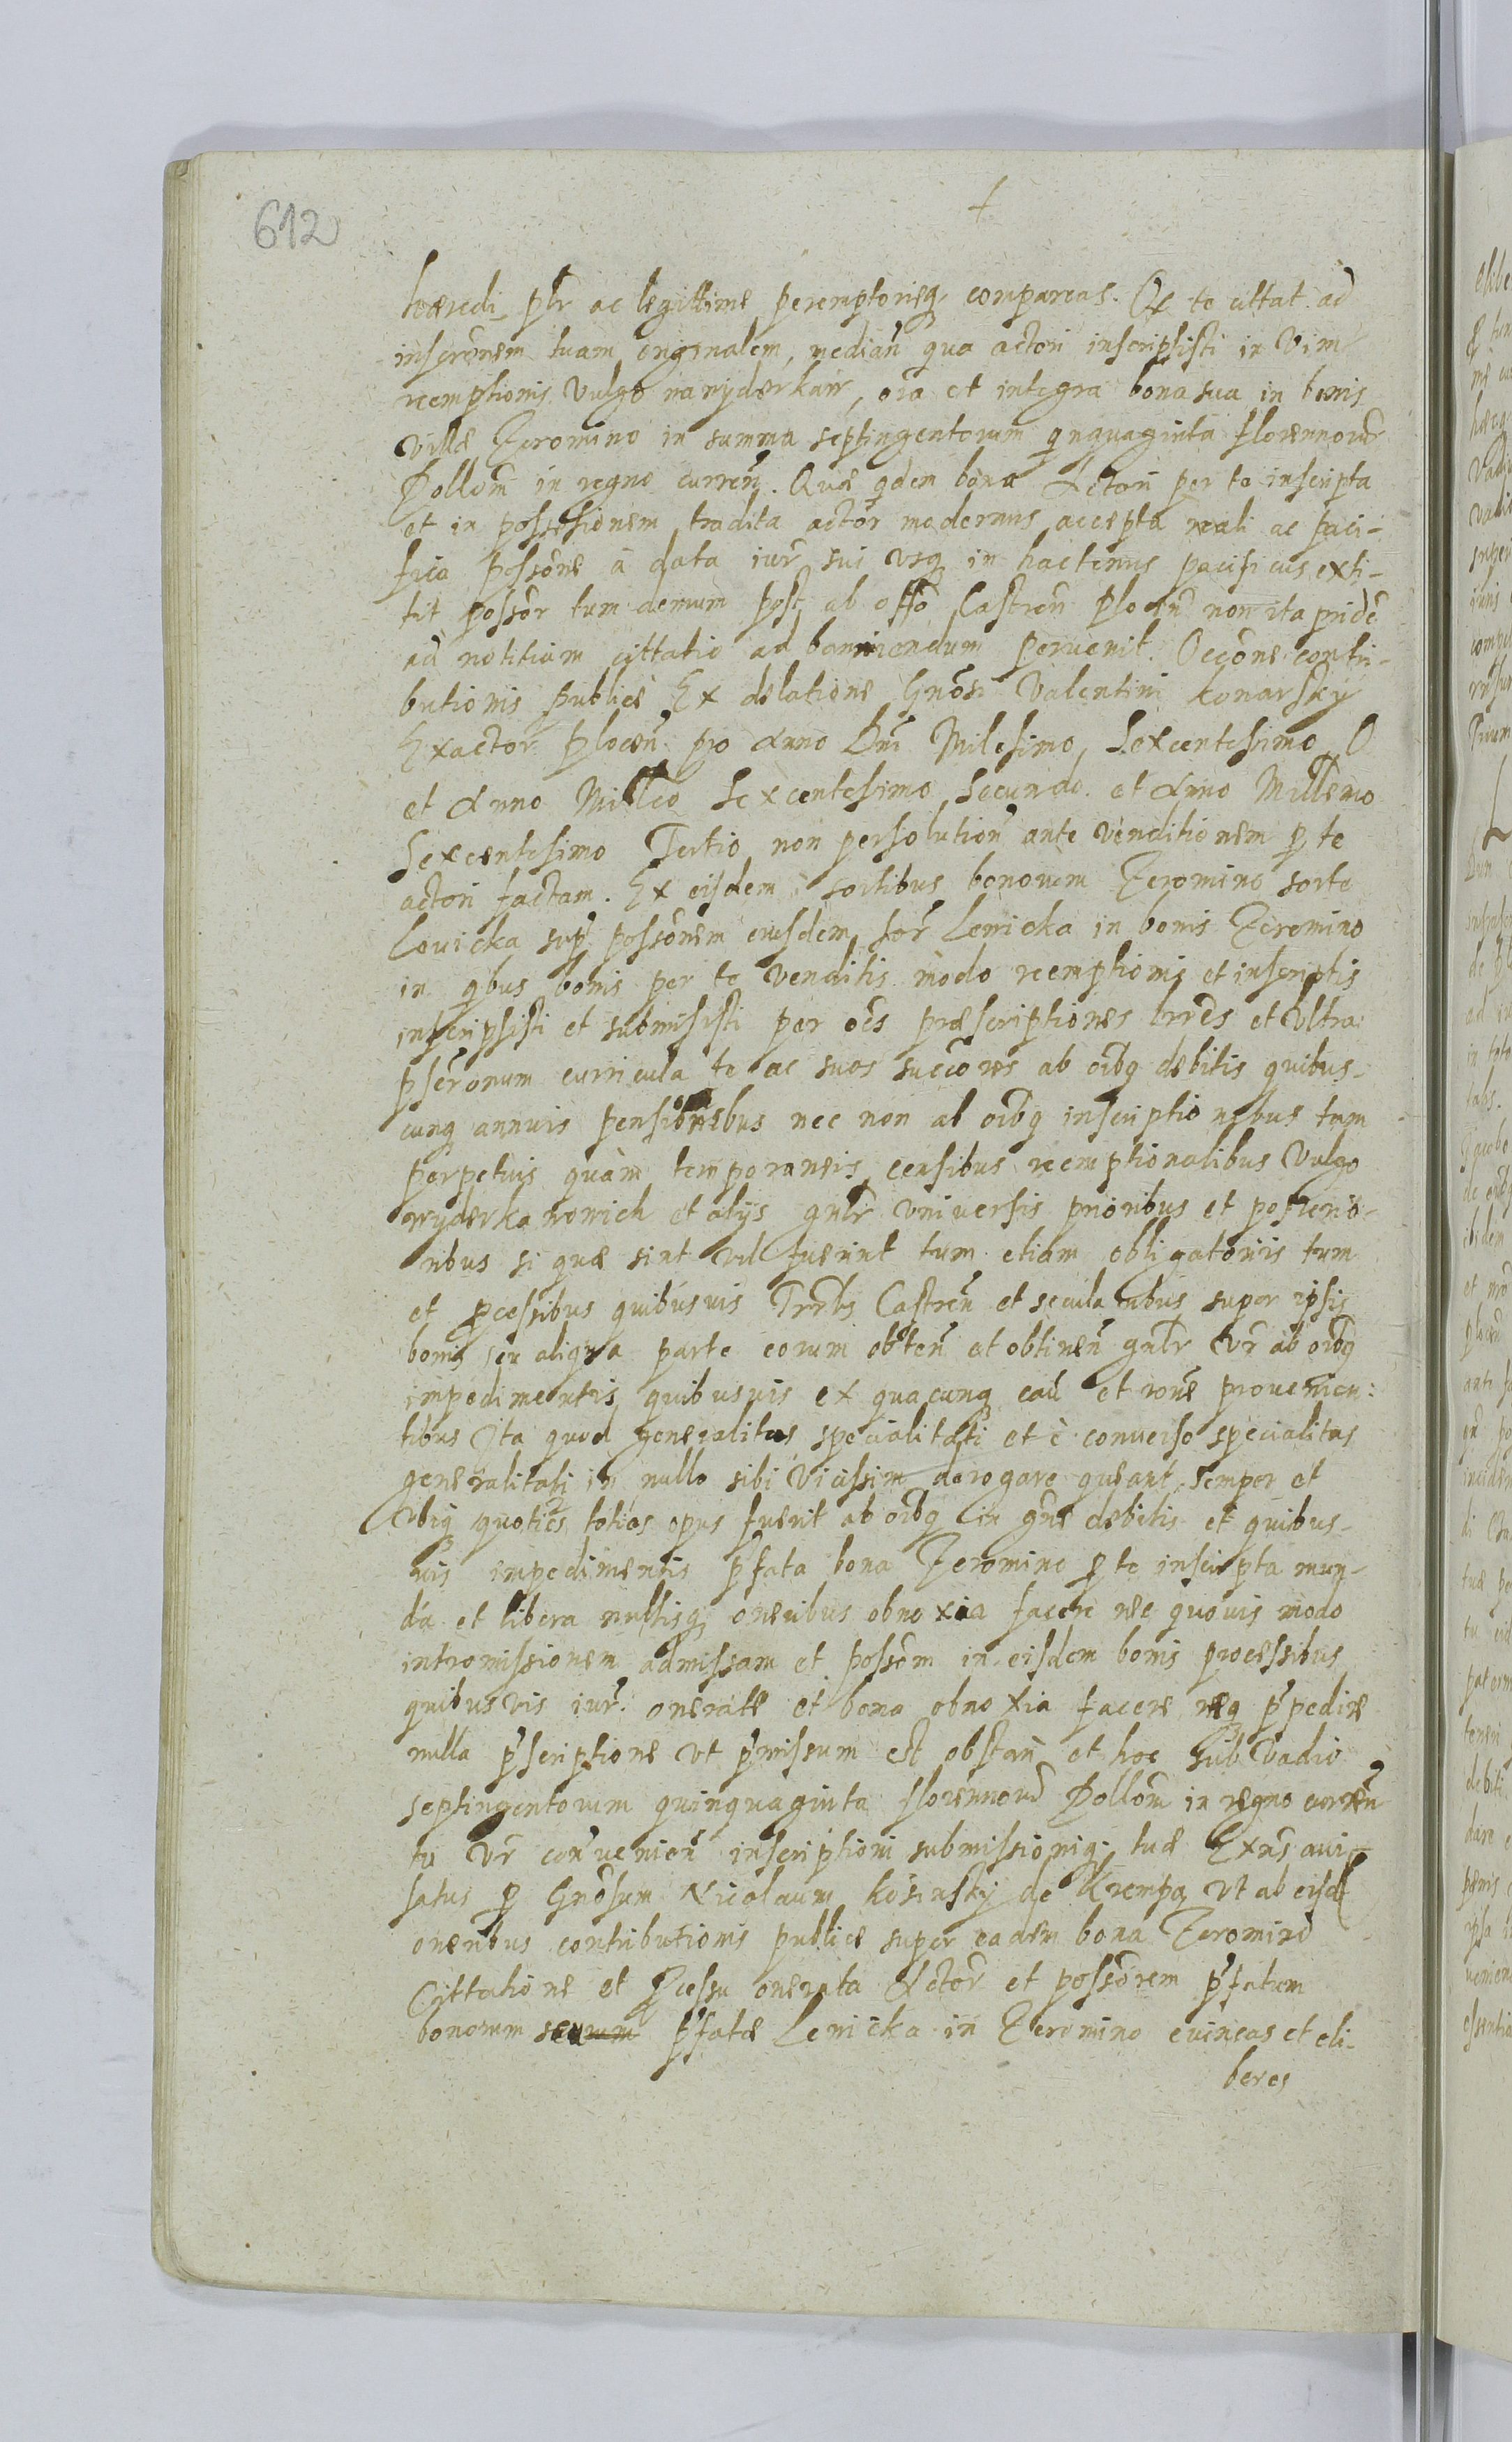 612
haeredi plr ac legittime peremptorieq compareas. Qc te cittat ad
inscronem tuam originalem, median qua actori inscripsisti in vim
reemptionis vulgo na wyderkaw, oia et integra bona sua in bonis
villae Zeromino in summa septingentorum qnquaginta florennorum
Pollom in regno curren. Quae qdem bona Actori per te inscripta
et in possessionem tradita actor modernus accepta reali ac paci-
fica possone a data iur sui usq in hactenus pacificus exti-
tit possor tum demum post ab offo Castren Plocen non ita pride
ad notitiam cittatio ad banniendum pervenit. Occone contri-
butionis publice Ex delatione Gnosi Valentini Konarsky
Exactor Plocen pro Anno Dni Milesimo, Sexcentesimo
et Anno Milleo Sexcentesimo Secundo et Anno Millemo
Sexcentesimo Tertio non persolution ante venditionem p te
actori factam. Ex eisdem sortibus bonorum Zeromino sorte
Lovicka sup possonem eiusdem sor Lenicka in bonis Zeromino
in qbus bonis per te venditis modo reemptionis et inscriptis
inscripsisti et submisisti per oes praescriptiones trres et ultra
pscronum curricula te ac suos succores ab oibq debitis quibus-
cunq annuis pensionibus nec non ab oibq inscriptionibus tam
perpetuis quam temporaneis censibus reemptionalibus vulgo
wyderka wowich et alijs gnlr universis prioribus et posterio-
ribus si quae sint vel fuerint tum etiam obligatoriis tum
et pcessibus quibusvis Trrbs Castren et secularibus super ipsis
bonis seu aliqua parte eorum obten et obtinen gnlr vr ab oibq
impedimentis quibusvis ex quacunq cau et rone provenien:
tibus Ita quod generalitas specialitati et e converso specialitas
generalitati in nullo sibi vicissim derogare queant, semper et
Ubiq quoties toties opus fuerit ab oibq in gne debitis et quibus-
vis impedimentis pfata bona Zeromino p te inscripta mun-
da et libera nullisq oneribus obnoxia facere nec quovis modo
intromissionem admissam et possom in eisdem bonis processibus
quibusvis iur. onerate et bona obnoxia facere neq ppedire
nulla pscriptione ut pmissum est obstan et hoc sub vadio
septingentorum quinquaginta florennorum Pollom in regno curren
tu vr convenien inscriptioni submissioniq tuae Exns avi-
satus p Gnosum Nicolaum Kosinsky de Krempa ut ab eisd
oneribus contributionis publice super eadem bona Zeromino
Cittatione et Pcessu onerata Actor et possorem pfatum
bonorum pfatae Lenicka in Zeromino evincas et eli-
beres